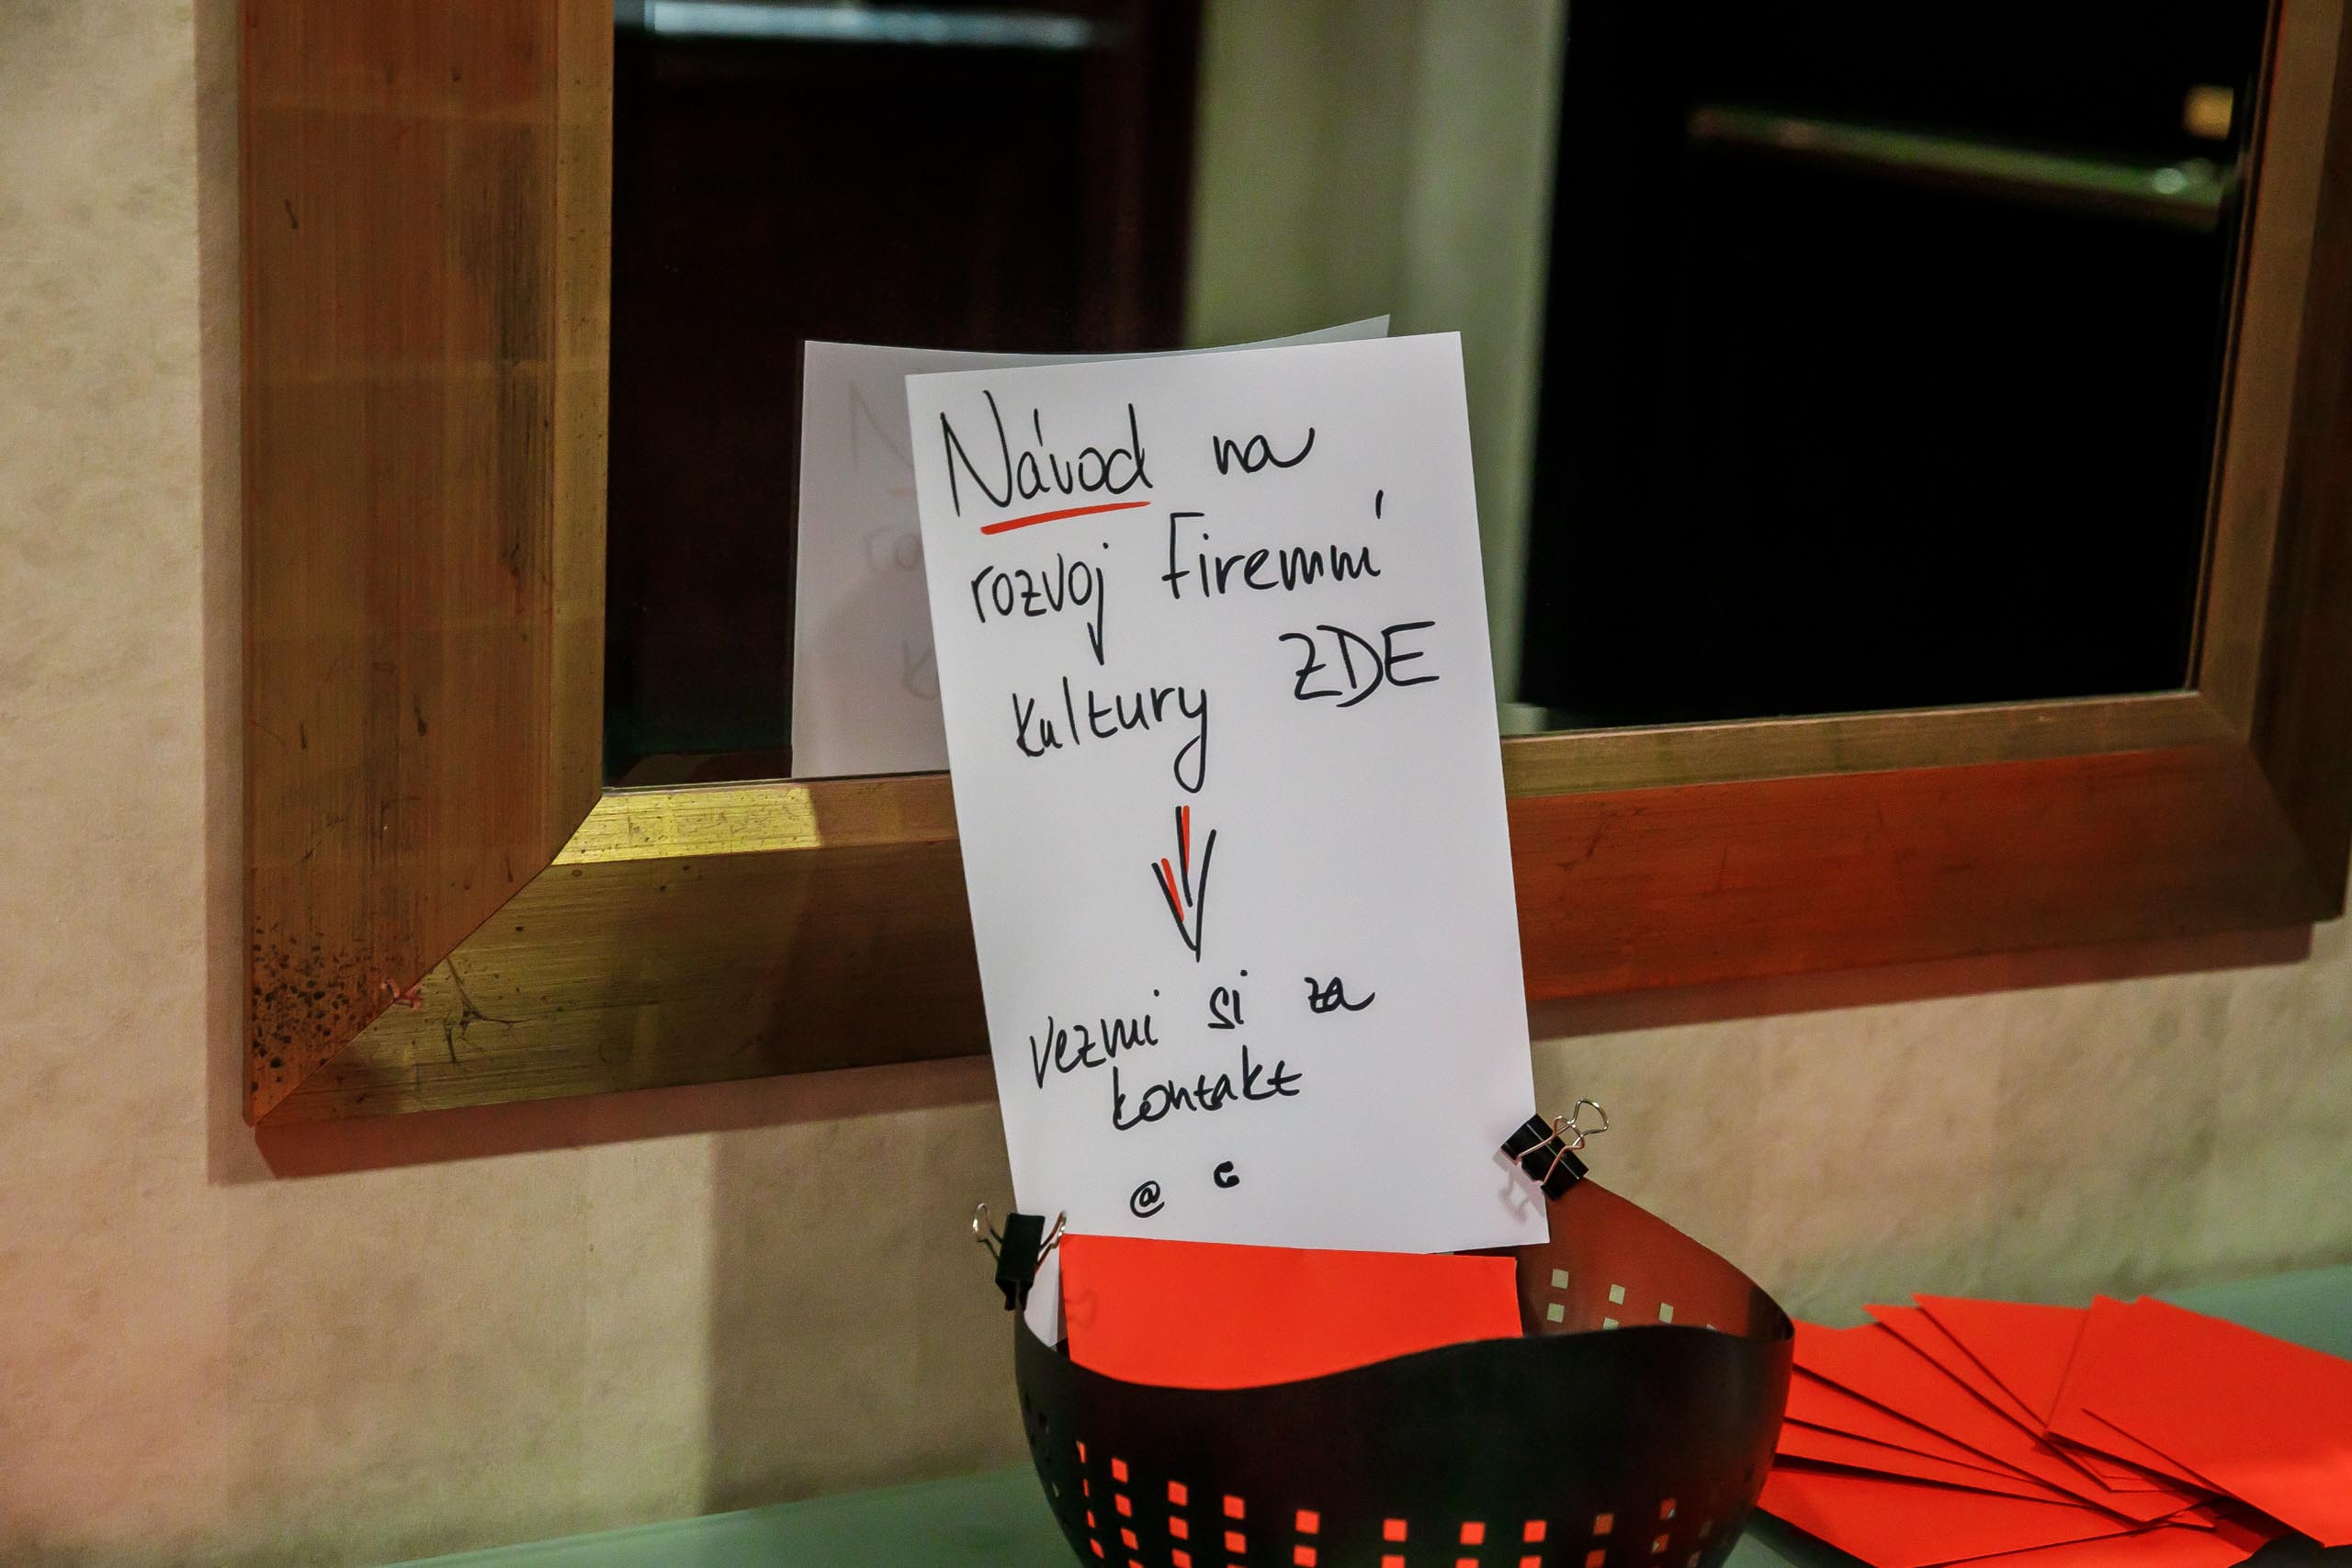 Návod na
rozvoj Firemní
kultury ZDE
vezmi si za
kontakt
@